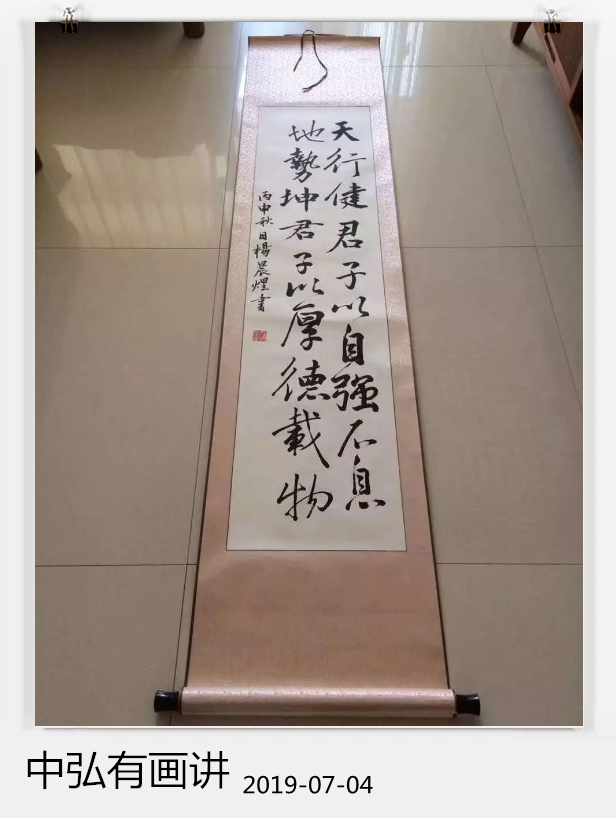 天行健君子以自强不息
地勢坤君子以厚德載物
丙申秋日楊晨煜書
中弘有画讲 2019-07-04